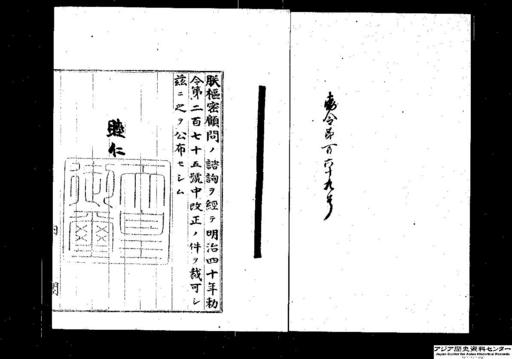 勅令第百六十九号
朕樞密顧問ノ諮詢ヲ經テ明治四十年勅
令第二百七十五號中改正ノ件ヲ裁可シ
茲ニ之ヲ公布セシム
睦仁
天皇
御璽
内閣
アジア歴史資料センター
Japan Center for Asian Historical Records